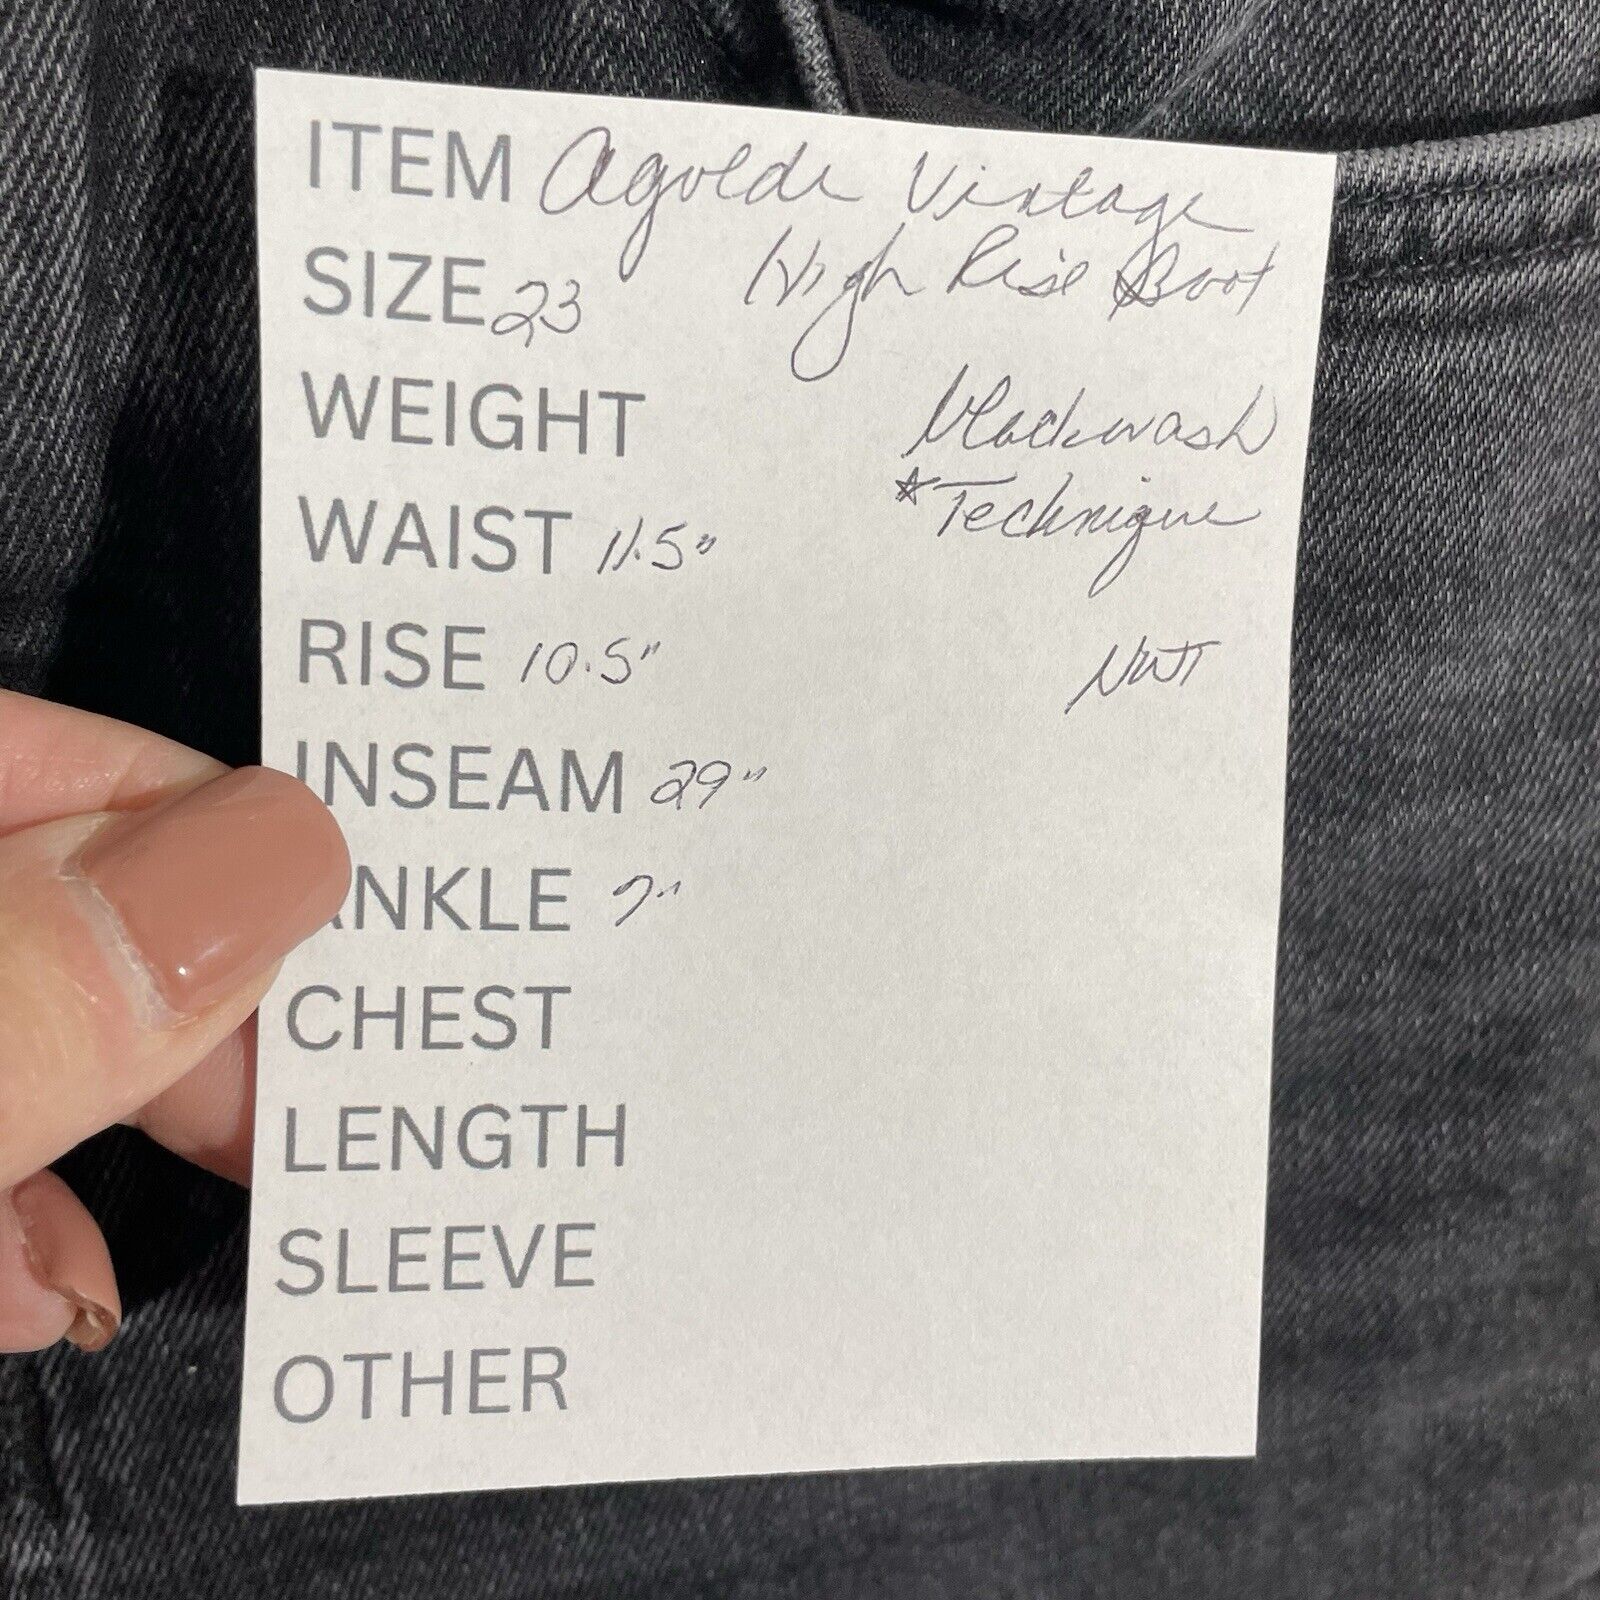 ITEM Agolde Vintage
High Rise Boot
SIZE 23
WEIGHT Blackwash
*Technique
WAIST 11.5"
RISE 10.5" NWT
INSEAM 29"
ANKLE 7"
CHEST
LENGTH
SLEEVE
OTHER